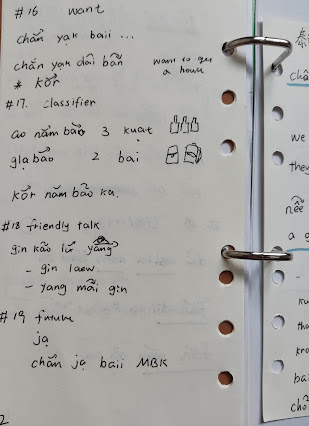 #16 want
chǎn yak baii ...
chǎn yak dâi bâan want to get a house
* kǒr
#17. classifier
ao nám bào 3 kuat
gla bǎo 2 bai
kǒr nám bào ka.
#18 friendly talk
gin kâo lúe yǎng
- gin laew
- yang mâi gin
#19 future
ja
chǎn ja baii MBK
2
châ
we
they
nêe
a c
-
ku
tha
kro
bai
chô